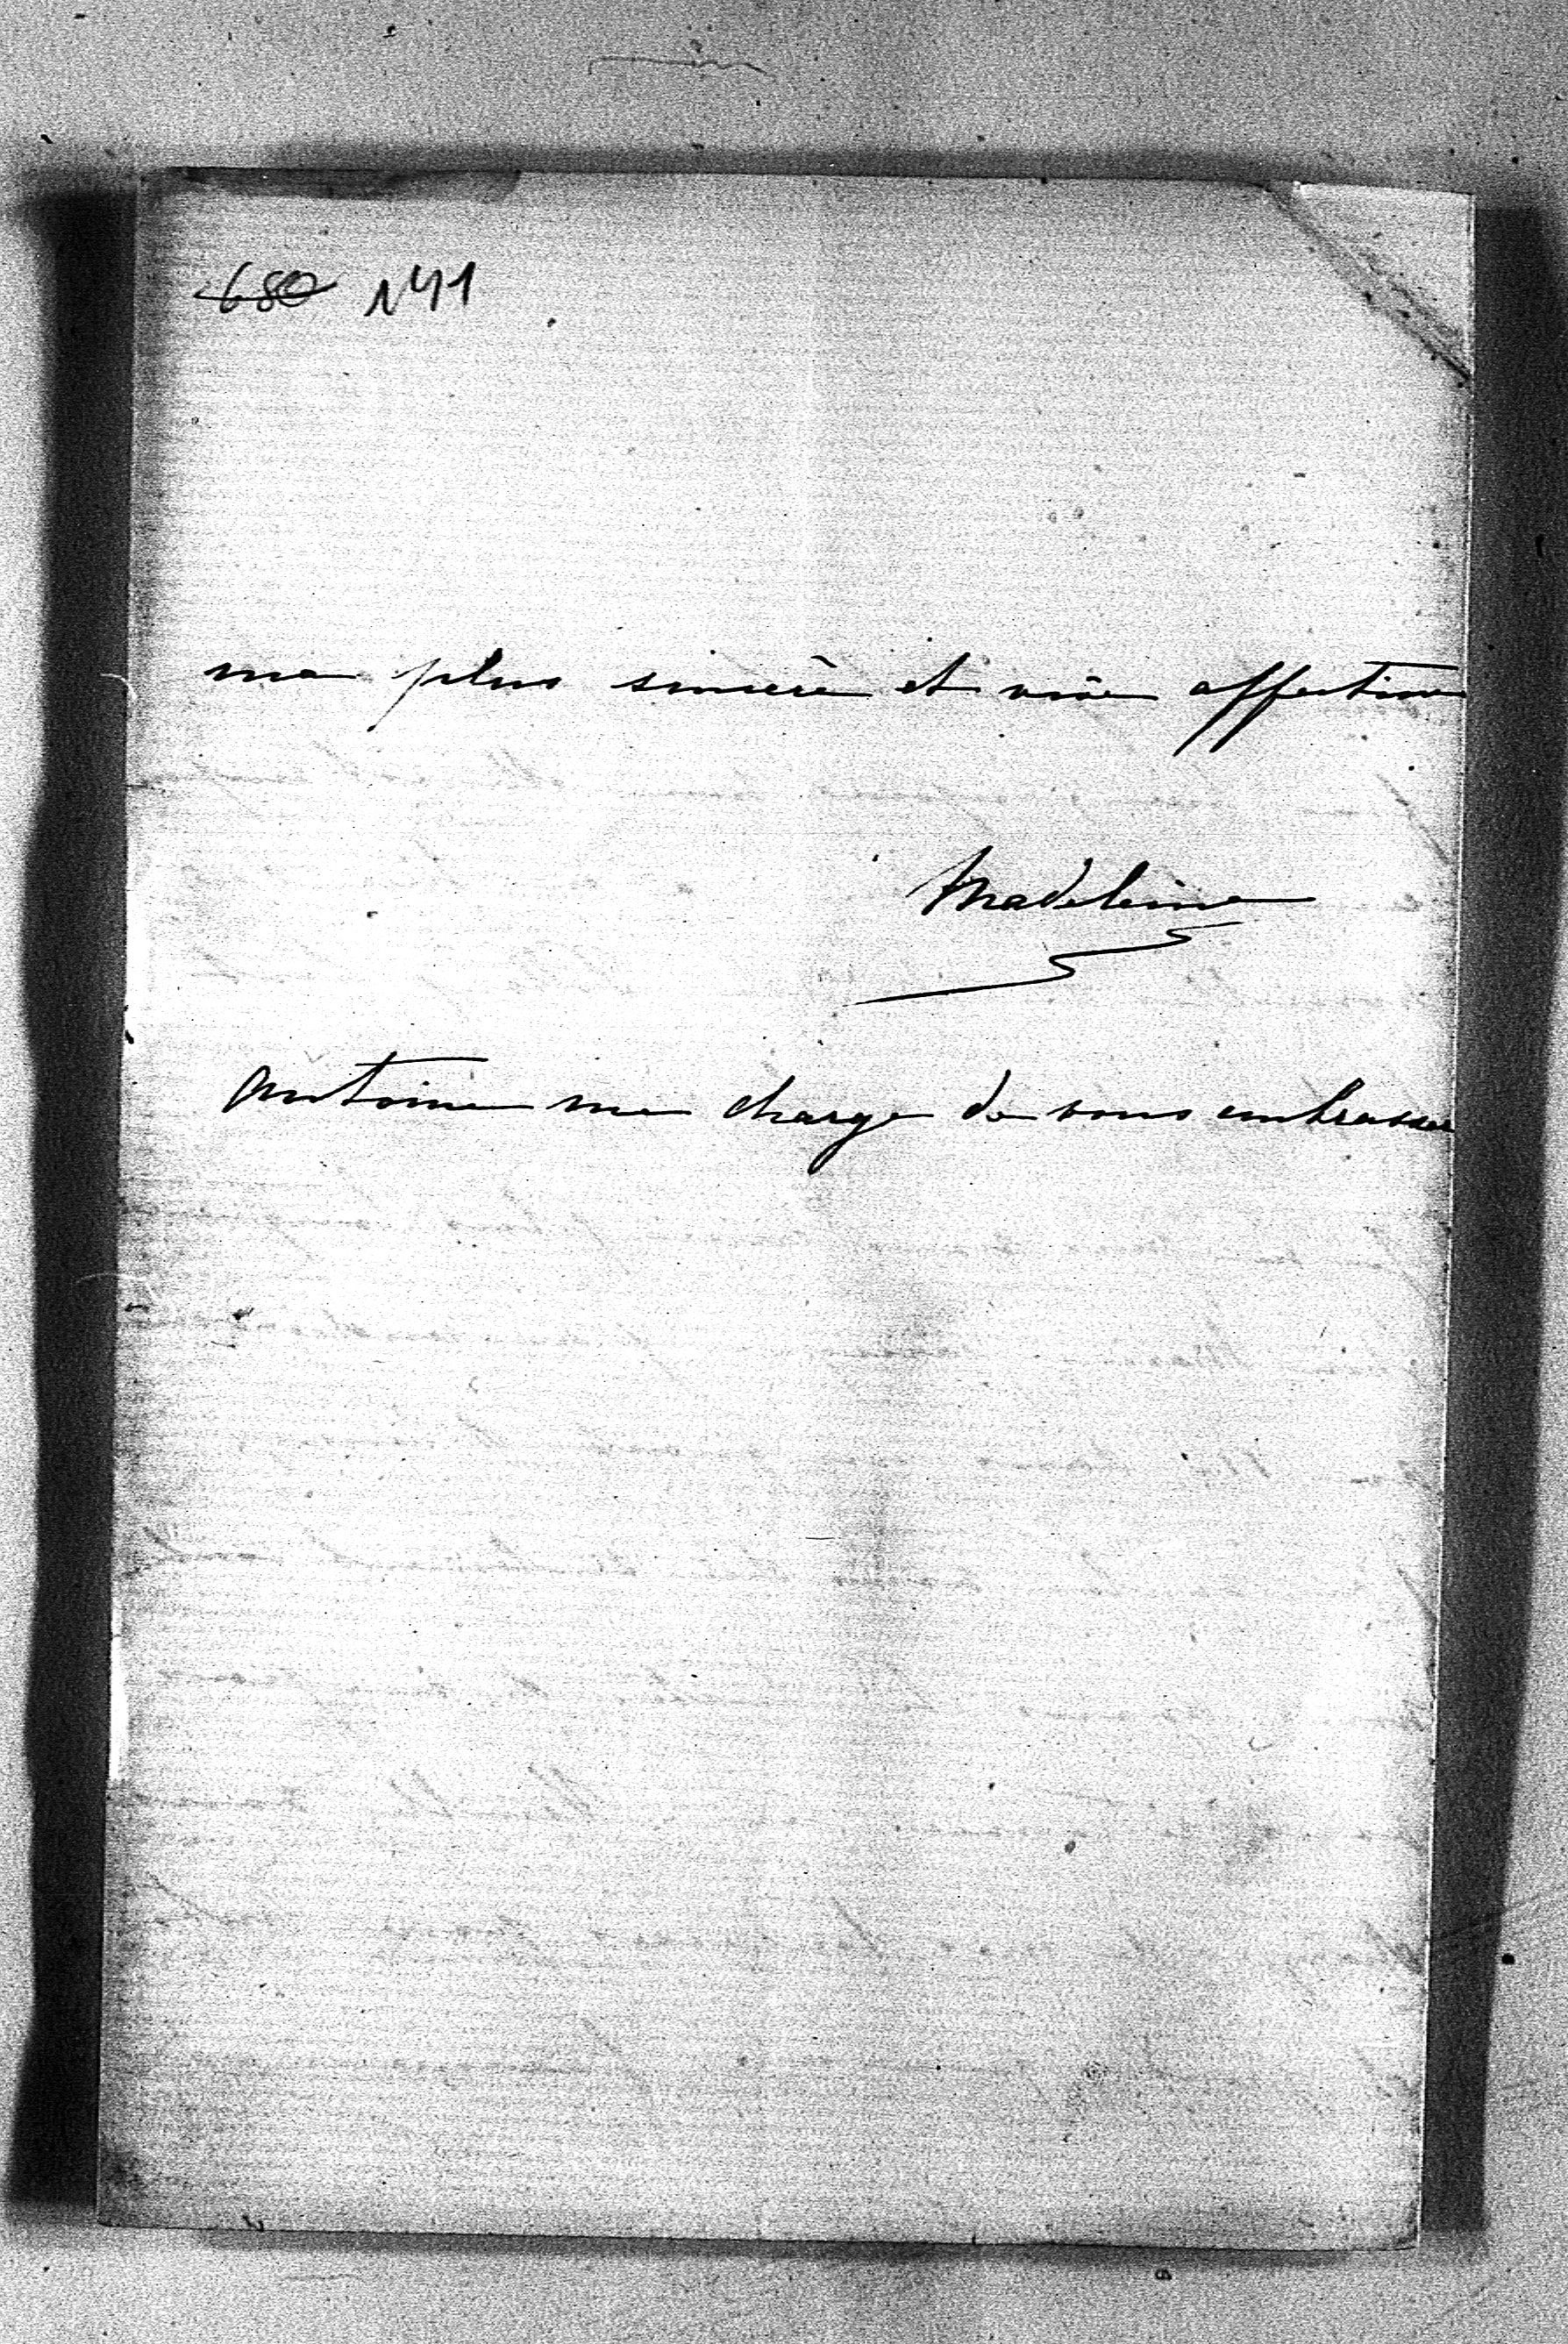 680 N41
ma plus sincère et vive affection
Madeleine
Antoine me charge de vous embrasser